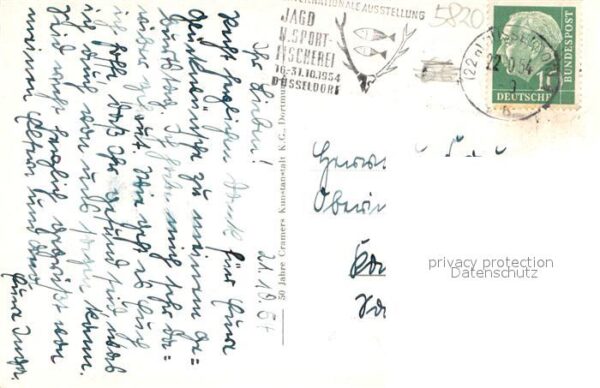 INTERNATIONALE AUSSTELLUNG
JAGD
U. SPORT-
FISCHEREI
16.-31.10.1954
DÜSSELDORF
5820
22.10.54
BUNDESPOST
DEUTSCHE
50 Jahre Cramers Kunstanstalt K.G., Dortmund
21.10.54
Ihr Lieben!
Recht herzlichen Dank für Eure
Glückwünsche zu meinem Ge=
burtstag. Ich habe mich sehr da=
rüber gefreut. Wie geht es Euch
ich hoffe daß Ihr gesund seid was
ich auch von uns sagen kann.
Seid recht herzlich gegrüßt von
meinen Eltern und
Eure
Herrn
privacy protection
Datenschutz